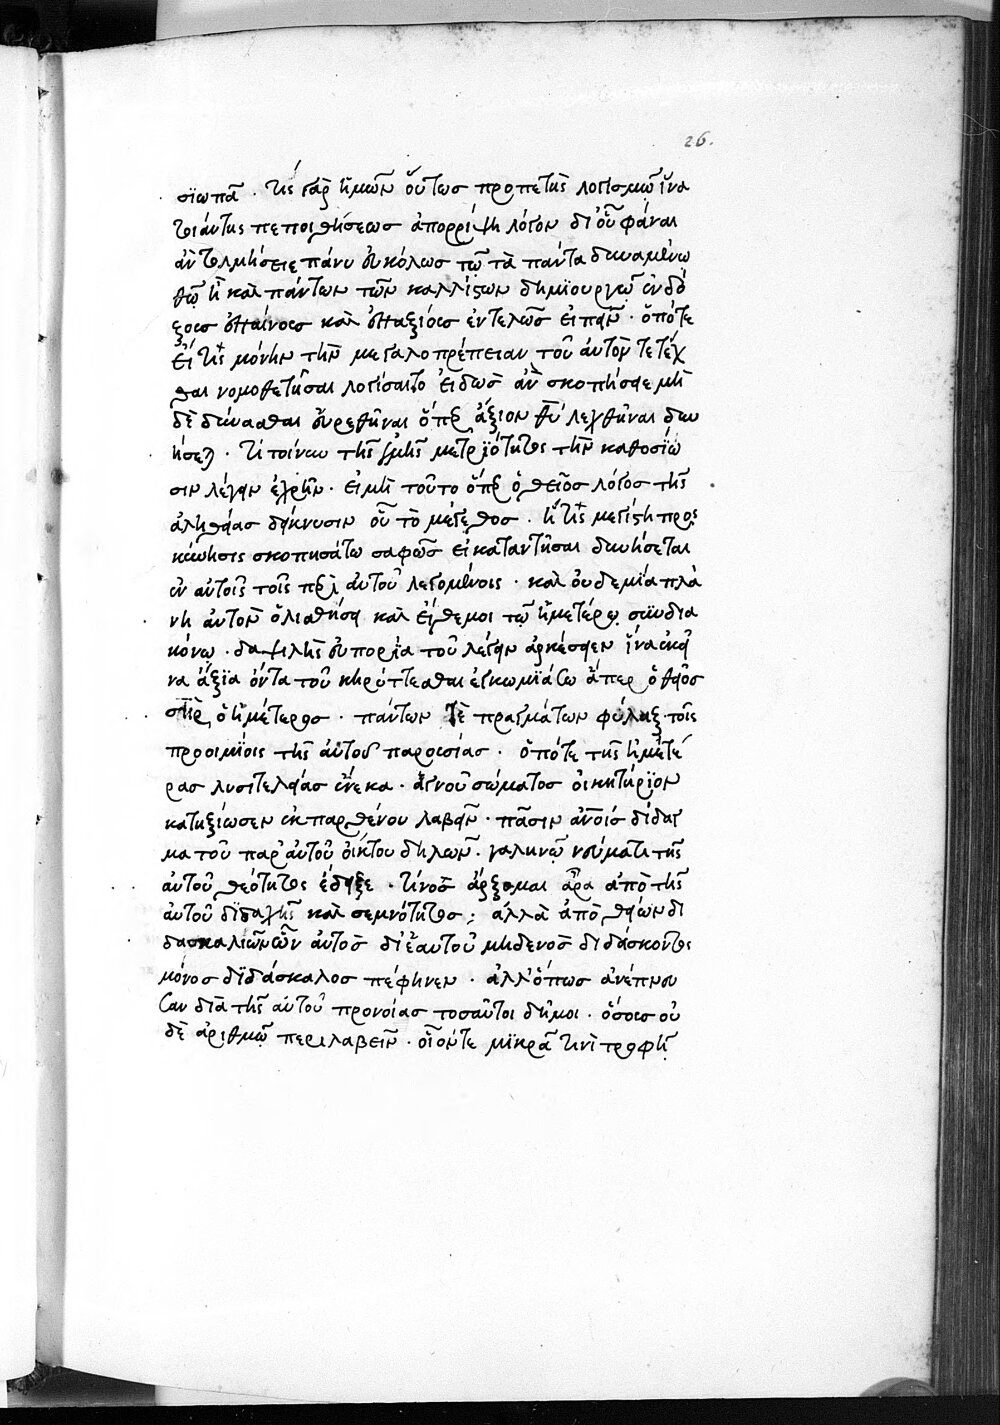 26.
σϊωπᾶ. τίς γὰρ ἡμῶν οὕτως προπετῆς λογισμῶ ἵνα
πεποιθήσεως ἀπορρίψη λόγον δι' οὗ φάναι
ἂν τολμήσειε πάνυ εὐκόλως τῶ τὰ πάντα δυναμένω
θῶ ἢ καὶ πάντων τῶν καλλίστων δημϊουργῶ ἐνδό
ξοις ἐπαίνοις καὶ ἐπαξίοις ἐντελῶς εἰπεῖν. ὁπότε
εἴ τις μόνην τὴν μεγαλοπρέπειαν τοῦ αὐτὸν τετέχ
θαι νομοθετῆσαι λογίσαιτο εἰδὼς ἂν σκοπήσειε μὴ
δὲ δύνασθαι εὑρεθῆναι ὅπερ ἄξιον θῦ λεχθῆναι δυν
ήσεται. τί τοίνυν τῆς ἐμῆς μετριότητος τὴν καθοσίω
σιν λέγειν ἐχρῆν. εἰ μὴ τοῦτο ὅπερ ὁ θεῖος λόγος τῆς
ἀληθείας δείκνυσιν οὗ τὸ μέγεθος. ἥτις μεγίστη προσ
κύνησις σκοπησάτω σαφῶς εἰ καταντῆσαι δυνήσεται
ἐν αὐτοῖς τοῖς περὶ αὐτοῦ λεγομένοις. καὶ οὐδεμία πλά
νη αὐτὸν ὀλισθήσει καὶ εἴθε μοι τῶ ἡμετέρω συνδια
κόνω. δαψιλὴς εὐπορία τοῦ λέγειν ἀρκέσειεν ἵνα ἐκεῖ
να ἄξϊα ὄντα τοῦ κηρύττεσθαι ἐγκωμϊάσω ἅπερ ὁ θεῖος
σὴρ ὁ ἡμέτερος. πάντων τε πραγμάτων φύλαξ τοῖς
προοιμίοις τῆς αὐτοῦ παρουσίας. ὁπότε τῆς ἡμετέ
ρας λυσιτελείας ἕνεκα. ἁγνοῦ σώματος οἰκητήριον
κατηξίωσεν ἐκ παρθένου λαβεῖν. πᾶσιν ἀνοις δίδαγ
μα τοῦ παρ' αὐτοῦ οἴκτου δηλῶν. γαληνῶ νεύματι τῆς
αὐτοῦ θεότητος ἔδειξε. τίνος ἄρξομαι ἆρα ἀπὸ τῆς
αὐτοῦ δϊδαχῆς καὶ σεμνότητος; ἀλλὰ ἀπὸ θείων δι
δασκαλιῶν ὧν αὐτὸς δι' ἑαυτοῦ μηδενὸς διδάσκοντος
μόνος δϊδάσκαλος πέφηνεν. ἀλλ' ὅπως ἀνέπνευ
σαν διὰ τῆς αὐτοῦ προνοίας τοσαῦτοι δῆμοι. ὅσοις οὐ
δὲ ἀριθμῶ περιλαβεῖν. οἷόν τε μϊκρᾶ τινὶ τροφῆ